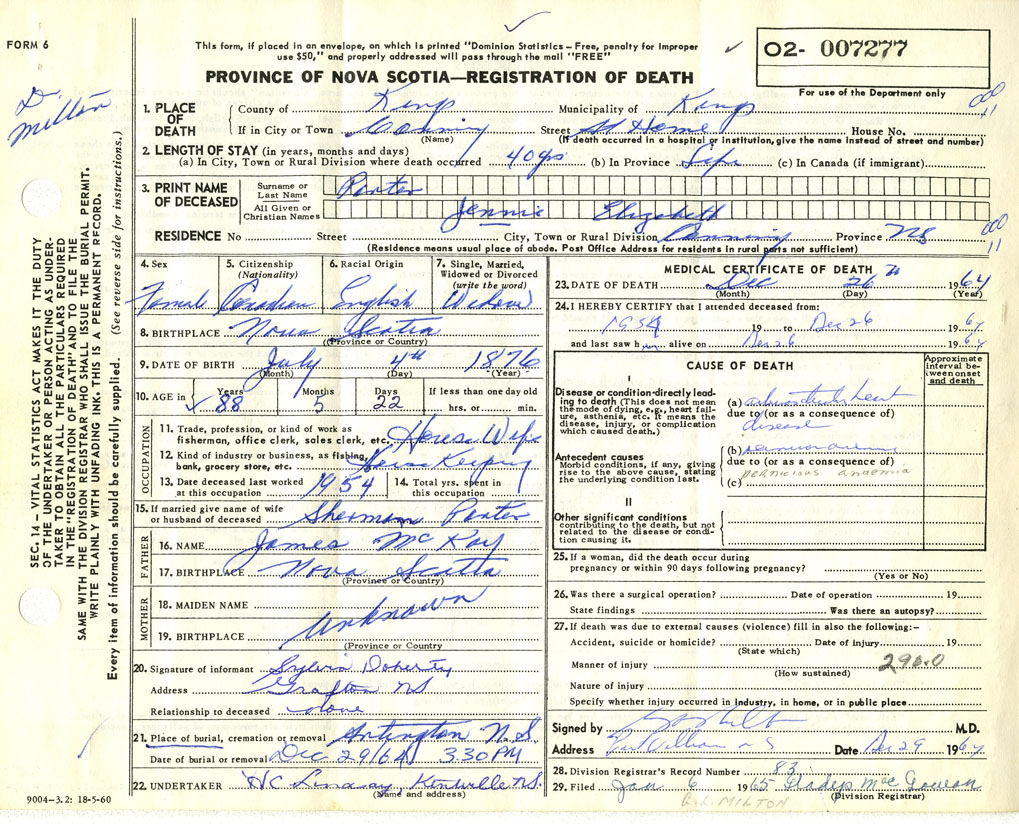 FORM 6
This form, if placed in an envelope, on which is printed "Dominion Statistics – Free, penalty for improper
use $50," and properly addressed will pass through the mail "FREE"
PROVINCE OF NOVA SCOTIA—REGISTRATION OF DEATH
O2- 007277
For use of the Department only
Dr Milton
SEC. 14 – VITAL STATISTICS ACT MAKES IT THE DUTY
OF THE UNDERTAKER OR PERSON ACTING AS UNDER-
TAKER TO OBTAIN ALL THE PARTICULARS REQUIRED
IN THE "REGISTRATION OF DEATH" AND TO FILE THE
SAME WITH THE DIVISION REGISTRAR WHO SHALL ISSUE THE BURIAL PERMIT.
WRITE PLAINLY WITH UNFADING INK. THIS IS A PERMANENT RECORD.
Every item of information should be carefully supplied. (See reverse side for instructions.)
1. PLACE OF DEATH
County of Kings Municipality of Kings
If in City or Town Canning Street At Home House No.
(Name) (If death occurred in a hospital or institution, give the name instead of street and number)
000 11
2. LENGTH OF STAY (in years, months and days)
(a) In City, Town or Rural Division where death occurred 40 yrs (b) In Province Life (c) In Canada (if immigrant)
3. PRINT NAME OF DECEASED
Surname or Last Name Porter
All Given or Christian Names Jennie Elizabeth
RESIDENCE No Street City, Town or Rural Division Canning Province NS
000 11
(Residence means usual place of abode. Post Office Address for residents in rural parts not sufficient)
4. Sex Female
5. Citizenship (Nationality) Canadian
6. Racial Origin English
7. Single, Married, Widowed or Divorced (write the word) Widow
8. BIRTHPLACE Nova Scotia
(Province or Country)
9. DATE OF BIRTH July 4th 1876
(Month) (Day) (Year)
10. AGE in Years 88 Months 5 Days 22 If less than one day old hrs. or min.
OCCUPATION
11. Trade, profession, or kind of work as
fisherman, office clerk, sales clerk, etc. House Wife
12. Kind of industry or business, as fishing,
bank, grocery store, etc. House Keeping
13. Date deceased last worked at this occupation 1954
14. Total yrs. spent in this occupation
15. If married give name of wife
or husband of deceased Sherman Porter
FATHER
16. NAME James McKay
17. BIRTHPLACE Nova Scotia
(Province or Country)
MOTHER
18. MAIDEN NAME
Unknown
19. BIRTHPLACE
(Province or Country
20. Signature of informant Sylvia Doherty
Address Grafton NS
Relationship to deceased none
21. Place of burial, cremation or removal N.S.
Date of burial or removal Dec 29/64 3.30 PM
22. UNDERTAKER H C Lindsay, Kentville N.S.
(Name and address)
9004–3.2: 18-5-60
MEDICAL CERTIFICATE OF DEATH
23. DATE OF DEATH Dec 26th 1964
(Month) (Day) (Year)
24. I HEREBY CERTIFY that I attended deceased from:
1954 19 to Dec 26 1964
and last saw h alive on Dec 26 1964
CAUSE OF DEATH
Approximate interval between onset and death
I
Disease or condition directly leading to death (This does not mean the mode of dying, e.g., heart failure, asthenia, etc. It means the disease, injury, or complication which caused death.)
(a) heart
due to (or as a consequence of)
disease
Antecedent causes
Morbid conditions, if any, giving rise to the above cause, stating the underlying condition last.
(b)
due to (or as a consequence of)
pernicious anaemia
(c)
II
Other significant conditions
contributing to the death, but not related to the disease or condition causing it.
25. If a woman, did the death occur during
pregnancy or within 90 days following pregnancy?
(Yes or No)
26. Was there a surgical operation? Date of operation 19
State findings Was there an autopsy?
27. If death was due to external causes (violence) fill in also the following:–
Accident, suicide or homicide? Date of injury 19
(State which)
Manner of injury 290.0
(How sustained)
Nature of injury
Specify whether injury occurred in Industry, in home, or in public place
Signed by M.D.
Address Port William N S Date Dec 29 1964
28. Division Registrar's Record Number 83
29. Filed Jan 6 1965 Gladys McGowan
(Division Registrar)
MILTON